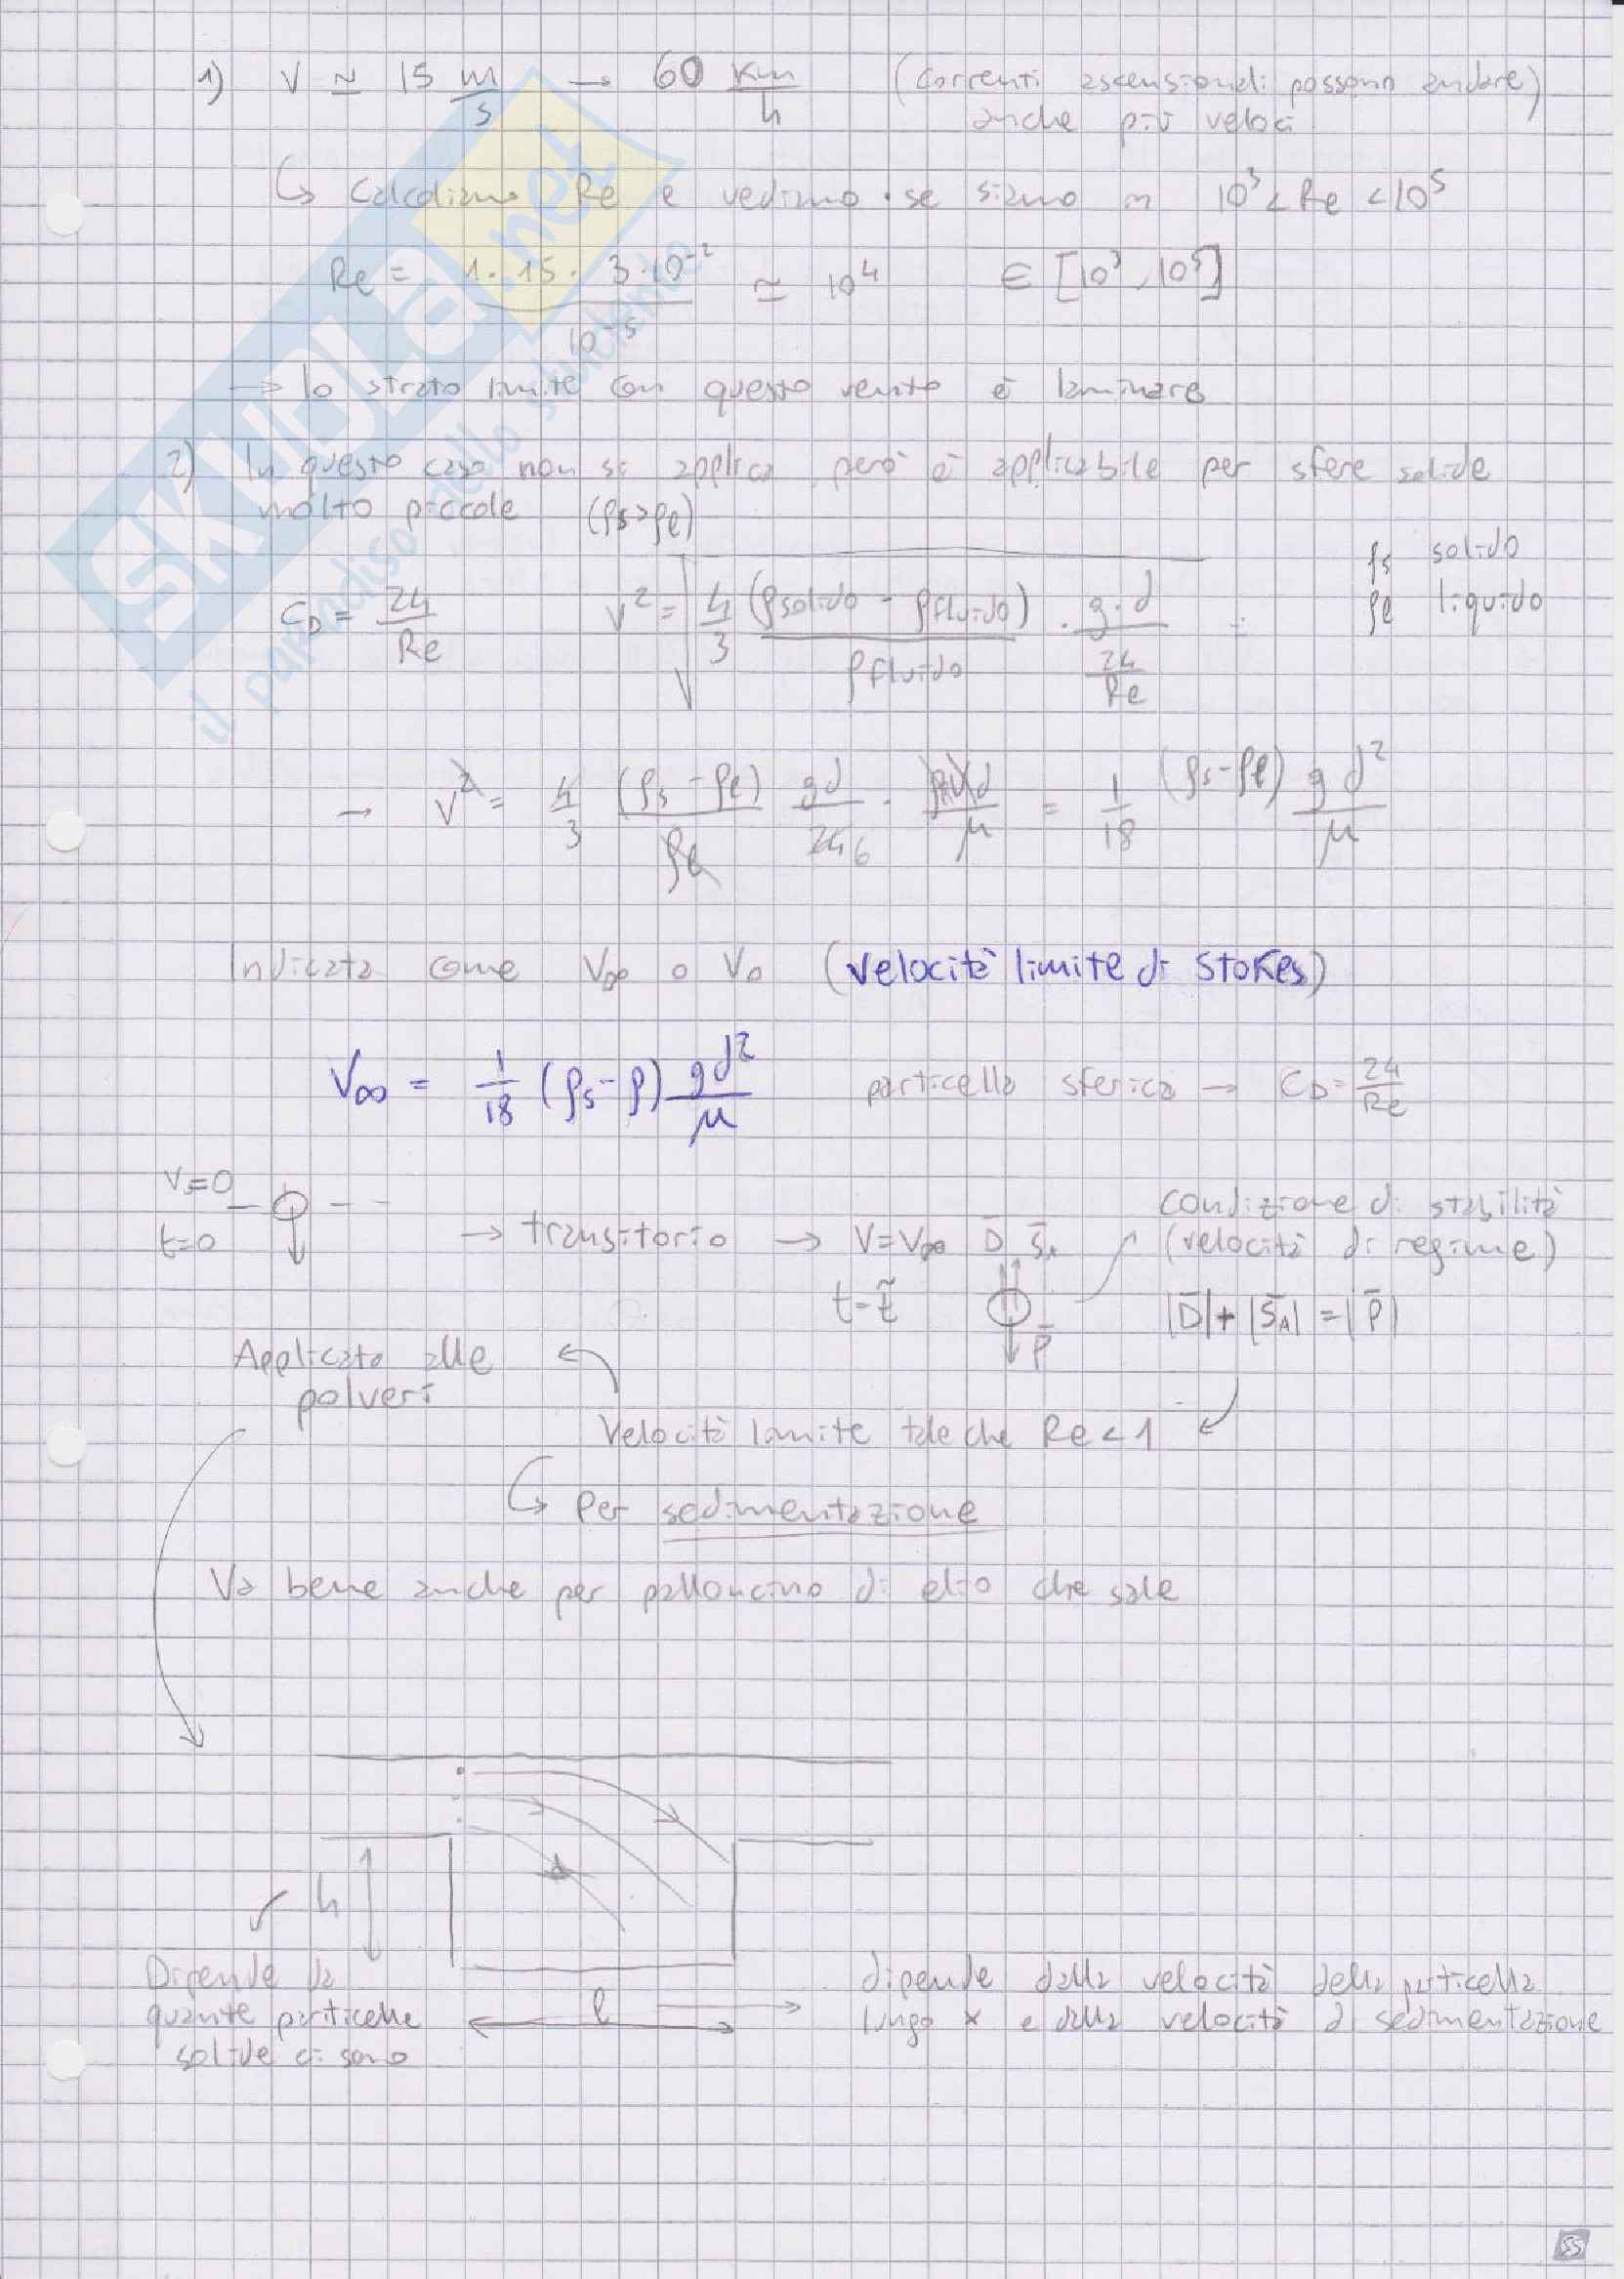 1) V ≃ 15 m/s → 60 Km/h (Correnti ascensionali possono andare)
anche più veloci
↳ Calcoliamo Re e vediamo se siamo in 10³ < Re < 10⁵
Re = 1·15·3·10⁻²/10⁻⁵ ≃ 10⁴ ∈ [10³, 10⁵]
→ lo strato limite con questo vento è laminare
2) In questo caso non si applica, però è applicabile per sfere solide
molto piccole (ρs>ρl)
ρs solido
ρl liquido
C_D = 24/Re V² = √(4/3 (ρsolido - ρfluido)/ρfluido · g·d/(24/Re)) =
→ V² = 4/3 (ρs-ρl)/ρl gd/24 6 · ρlVd/μ = 1/18 (ρs-ρl) g d²/μ
Indicata come V∞ o V₀ (velocità limite di Stokes)
V∞ = 1/18 (ρs-ρ) gd²/μ particella sferica → C_D = 24/Re
Vs=0
t=0
→ transitorio → V=V∞ D̄ S̄A
t=t̃
P̄
Condizione di stabilità
(velocità di regime)
|D̄|+|S̄A|=|P̄|
Applicato alle
polveri
Velocità limite tale che Re<1
↳ Per sedimentazione
Va bene anche per palloncino di elio che sale
h
Dipende da
quante particelle
solide ci sono
l
dipende dalla velocità della particella
lungo x e dalla velocità di sedimentazione
55
SKUOLA.net
il paradiso dello studente